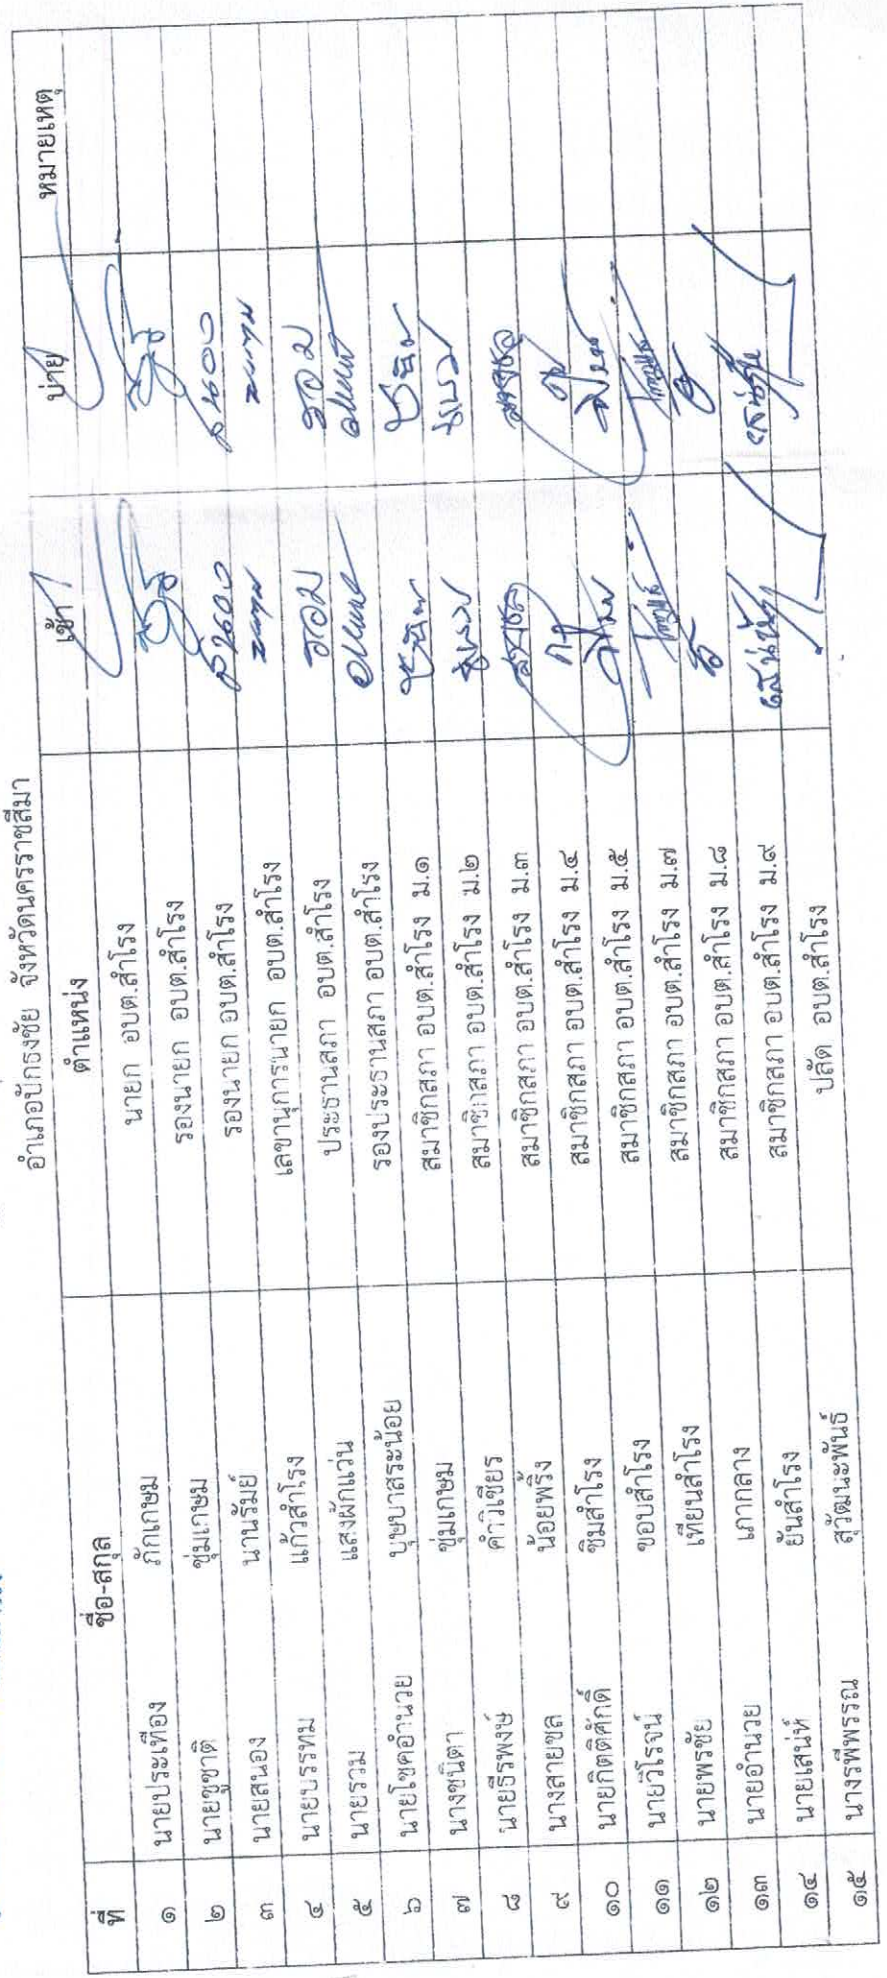 อำเภอปักธงชัย จังหวัดนครราชสีมา
ที่ ชื่อ-สกุล ตำแหน่ง เช้า บ่าย หมายเหตุ
๑ นายประเทือง ภักเกษม นายก อบต.สำโรง
๒ นายชูชาติ ชุ่มเกษม รองนายก อบต.สำโรง
๓ นายสนอง นานรัมย์ รองนายก อบต.สำโรง สนอง สนอง
๔ นายบรรทม แก้วสำโรง เลขานุการนายก อบต.สำโรง
๕ นายรวม แสงผักแว่น ประธานสภา อบต.สำโรง รวม รวม
๖ นายโชคอำนวย บุษบาสระน้อย รองประธานสภา อบต.สำโรง
๗ นางชนิตา ชุ่มเกษม สมาชิกสภา อบต.สำโรง ม.๑
๘ นายธีรพงษ์ คำวิเชียร สมาชิกสภา อบต.สำโรง ม.๒
๙ นางสายชล น้อยพริ้ง สมาชิกสภา อบต.สำโรง ม.๓ สายชล สายชล
๑๐ นายกิตติศักดิ์ ชิมสำโรง สมาชิกสภา อบต.สำโรง ม.๔
๑๑ นายวิโรจน์ ขอบสำโรง สมาชิกสภา อบต.สำโรง ม.๕
๑๒ นายพรชัย เทียนสำโรง สมาชิกสภา อบต.สำโรง ม.๗
๑๓ นายอำนวย เภากลาง สมาชิกสภา อบต.สำโรง ม.๘
๑๔ นายเสน่ห์ ยันสำโรง สมาชิกสภา อบต.สำโรง ม.๙ เสน่ห์ เสน่ห์
๑๕ นางรพีพรรณ สุวัฒนะพันธ์ ปลัด อบต.สำโรง